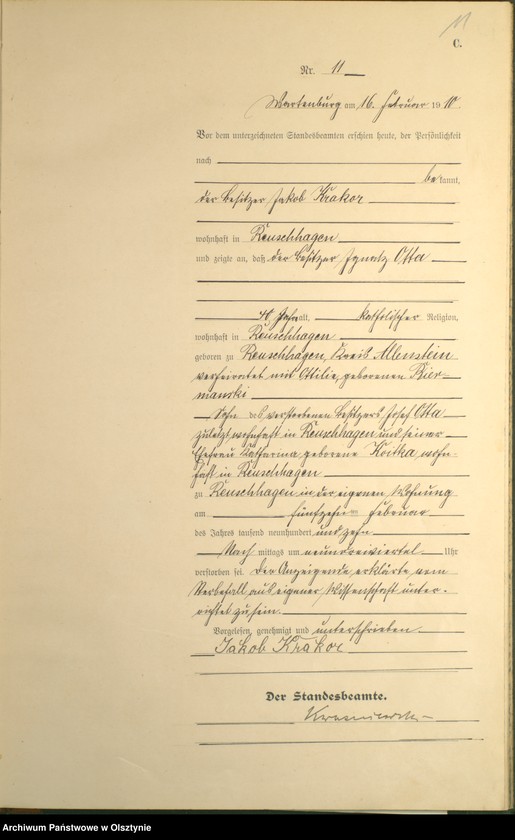 11
C.
Nr. 11
Wartenburg am 16. Februar 1910
Vor dem unterzeichneten Standesbeamten erschien heute, der Persönlichkeit
nach
bekannt,
der Besitzer Jakob Krakor
wohnhaft in Reuschhagen
und zeigte an, daß der Besitzer Ignatz Otta
40 Jahre alt, katholischer Religion,
wohnhaft in Reuschhagen
geboren zu Reuschhagen, Kreis Allenstein
verheiratet mit Ottilie, geborenen Bier-
manski
Sohn des verstorbenen Besitzers Josef Otta
zuletzt wohnhaft in Reuschhagen und seiner
Ehefrau Katharina geborene wohn-
haft in Reuschhagen
zu Reuschhagen in der eigenen Wohnung
am fünfzehnten Februar
des Jahres tausend neunhundert und zehn
Nach mittags um neundreiviertel Uhr
verstorben sei. Der Anzeigende erklärte vom
Sterbefall aus eigener Wissenschaft unter-
richtet zu sein.
Vorgelesen, genehmigt und unterschrieben
Jakob Krakor
Der Standesbeamte.
Archiwum Państwowe w Olsztynie